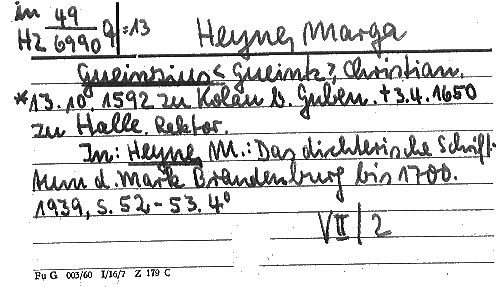 in 49
HZ 6990 q = 13
Heyne, Marga
Gueintzius < Gueintz >, Christian.
*13.10. 1592 zu Kolau b. Guben. †3.4.1650
zu Halle. Rektor.
In: Heyne, M.: Das dichterische Schrift-
tum d. Mark Brandenburg bis 1700.
1939, S. 52-53. 4°
VII/2
Fu G 003/60 I/16/7 Z 179 C